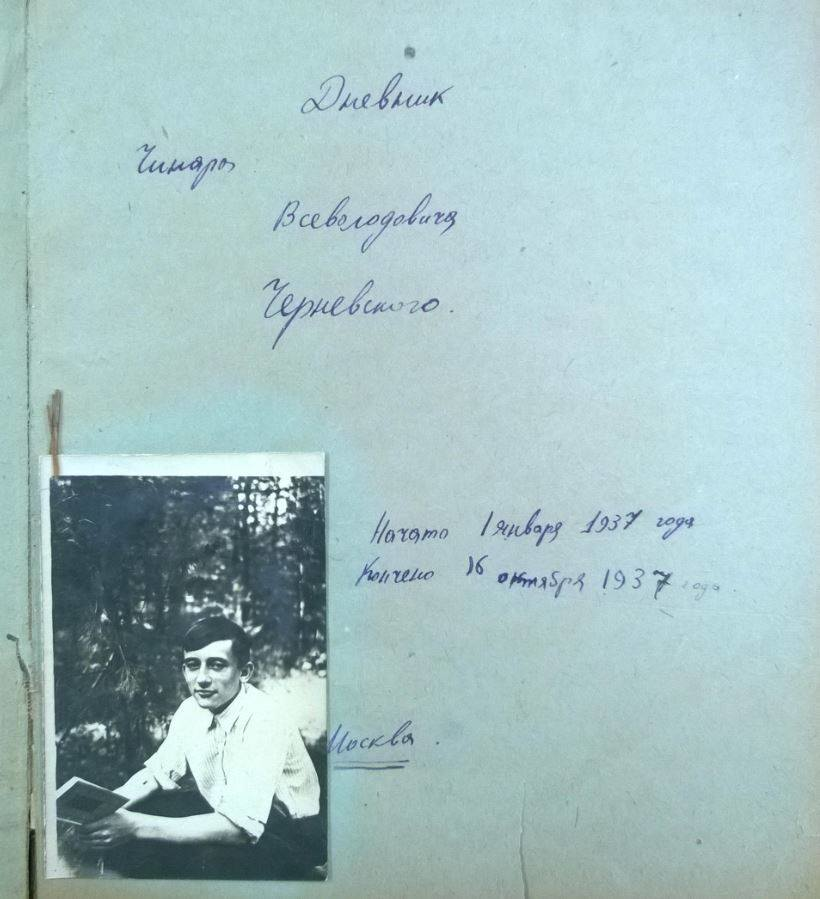 Дневник
Чинара
Всеволодовича
Черневского.
Начато 1 января 1937 года
Кончено 16 октября 1937 года.
Москва.